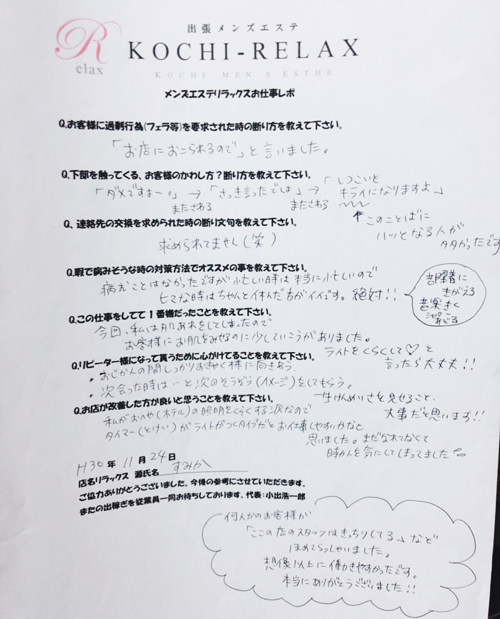 出張メンズエステ
R
elax
KOCHI-RELAX
KOCHI MEN'S ESTHE
メンズエステリラックスお仕事レポ
Q.お客様に過剰行為(フェラ等)を要求された時の断り方を教えて下さい。
「お店におこられるので」と言いました。
Q.下部を触ってくる、お客様のかわし方?断り方を教えて下さい。
「ダメですよ〜。」→「さっき言ったでしょ」→「しつこいと
キライになりますよ」
またさわる またさわる
このことばに
ハッとなる人が
多かったです
Q、連絡先の交換を求められた時の断り文句を教えて下さい。
求められてません(笑)
Q.暇で病みそうな時の対策方法でオススメの事を教えて下さい。
病むことはなかったですが忙しい時は本当に忙しいので
ヒマな時はちゃんと休んだ方がイイです。絶対!!
部屋着に
きがえる
音楽きく
しゃべる
Q.この仕事をしてて1番嫌だったことを教えて下さい。
今回、私は肌あれをしてしまったので
お客様にお肌をみせるのに少していこうがありました。
ライトをくらくして♡と
言ったら大丈夫!!
Q.リピーター様になって貰うために心がけてることを教えて下さい。
・おじかんの間しっかりお客様に向き合う。
・次会った時は…と次のそうぞう(イメージ)をしてもらう。
一生けんめいさを見せること、
大事だと思います!!
Q.お店が改善した方が良いと思うことを教えて下さい。
私がおへや(ホテル)の照明をくらくする派なので
タイマー(とけい)がライトがつくタイプだとお仕事しやすいかなと
思いました。まだなれてなくて
時かんを気にしてしまってました
H30年 11月 24日
店名リラックス 源氏名 すみか
ご協力ありがとうございました。今後の参考にさせていただきます。
またの出稼ぎを従業員一同お待ちしております。代表:小出浩一郎
何人かのお客様が
「ここの店のスタッフはきっちりしてる」など
ほめてらっしゃいました。
想像以上に働きやすかったです。
本当にありがとうございました!!